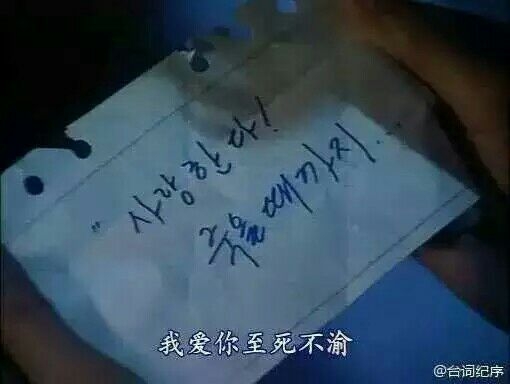 "사랑한다!
죽을때까지...
我爱你至死不渝
@台词纪序